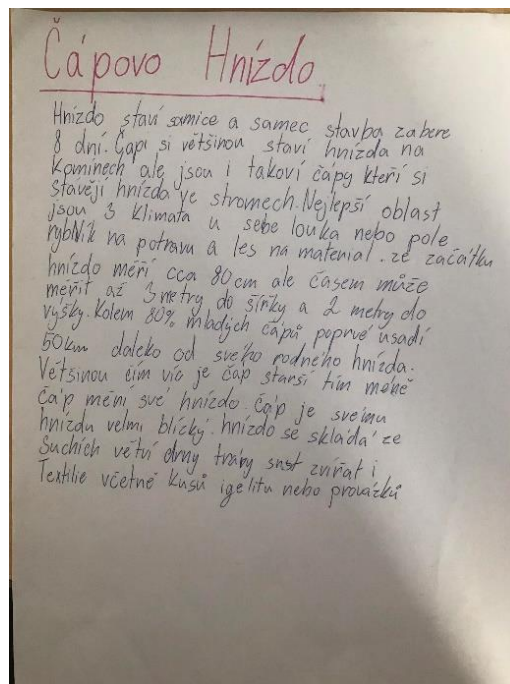 Čápovo Hnízdo
Hnízdo staví samice a samec stavba zabere
8 dní. Čapi si většinou staví hnízda na
Komínech ale jsou i takoví čápy kteří si
stavějí hnízda ve stromech. Nejlepší oblast
jsou 3 klimata u sebe louka nebo pole
rybNík na potravu a les na material. ze začátku
hnízdo měří cca 80cm ale časem může
měřit až 3metry do šířky a 2 metry do
výšky. Kolem 80% mladých čápů poprvé usadí
50km daleko od svého rodného hnízda.
Většinou čím víc je čáp starší tím méně
čáp mění své hnízdo. Čáp je svému
hnízdu velmi blízký. hnízdo se skládá ze
Suchích větví drny trávy srst zvířat i
Textilie včetně kusů igelitu nebo provázků